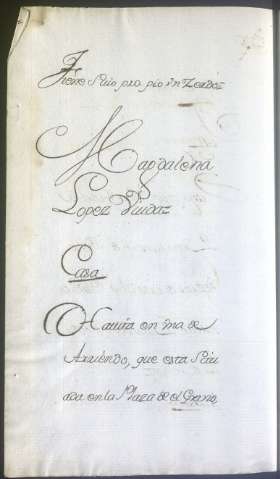 Tiene Suio pro pio un Zerdo
Magdalena
Lopez Viuda
Casa
Havita en una de
Arriendo, que esta Situ
ada en la Plaza de el Grano